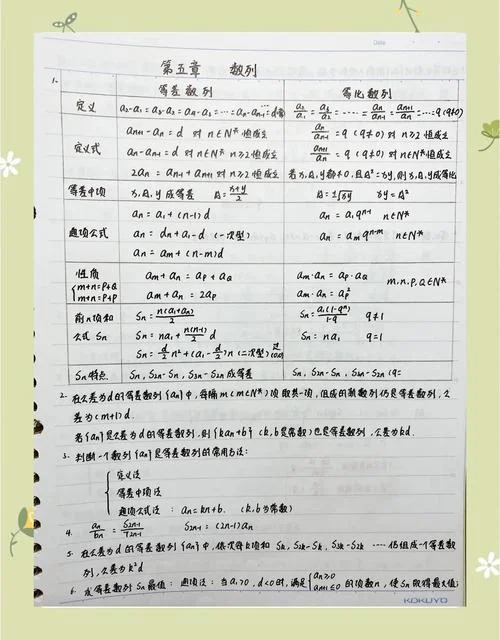 Date
第五章 数列
1.
等差数列 等比数列
定义 a₂-a₁=a₃-a₂=aₙ-aₙ₋₁=…=aₙ-aₙ₋₁=…=d常 a₂/a₁=a₃/a₂=……=aₙ/aₙ₋₁=aₙ₊₁/aₙ=…=q(q≠0)
定义式 aₙ₊₁-aₙ=d 对n∈N*恒成立 aₙ/aₙ₋₁=q (q≠0) 对n≥2恒成立
aₙ-aₙ₋₁=d 对n∈N* n≥2恒成立 aₙ₊₁/aₙ=q (q≠0) 对n∈N*恒成立
2aₙ=aₙ₋₁+aₙ₊₁ 对n∈N* n≥2恒成立 若x,A,y都不0,且A²=xy,则x,A,y成等比
等差中项 x,A,y成等差 A=(x+y)/2 A=±√xy xy=A²
通项公式 aₙ=a₁+(n-1)d aₙ=a₁qⁿ⁻¹ n∈N*
aₙ=dn+a₁-d (一次型) aₙ=aₘqⁿ⁻ᵐ n∈N*
aₙ=aₘ+(n-m)d
性质 {m+n=p+q aₘ+aₙ=aₚ+a_q aₘ·aₙ=aₚ·a_q m,n,p,q∈N*
m+n=p+p aₘ+aₙ=2aₚ aₘ·aₙ=aₚ²
前n项和 Sₙ=n(a₁+aₙ)/2 Sₙ=a₁(1-qⁿ)/(1-q) q≠1
公式Sₙ Sₙ=na₁+n(n-1)/2 d Sₙ=na₁ q=1
Sₙ=d/2 n²+(a₁-d/2)n (二次型) 过(0,0)
Sₙ特点 Sₙ, S₂ₙ-Sₙ, S₃ₙ-S₂ₙ成等差 Sₙ, S₂ₙ-Sₙ, S₃ₙ-S₂ₙ (q=
2. 在公差为d的等差数列{aₙ}中,每隔m(m∈N*)项取出一项,组成的新数列仍是等差数列,公
差为(m+1)d.
若{aₙ}是公差为d的等差数列,则{kaₙ+b} (k,b是常数)也是等差数列,公差为kd.
3. 判断一个数列{aₙ}是等差数列的常用方法:
定义法
等差中项法
通项公式法: aₙ=kn+b. (k,b为常数)
4. aₙ/bₙ=S₂ₙ₋₁/T₂ₙ₋₁ S₂ₙ₋₁=(2n-1)aₙ
5. 在公差为d的等差数列{aₙ}中,依次每k项和Sₖ,S₂ₖ-Sₖ,S₃ₖ-S₂ₖ……仍组成一个等差数
列,公差为k²d
6. 求等差数列Sₙ最值: 通项法: 当a₁>0,d<0时,满足{aₙ≥0 aₙ₊₁≤0的项数n,使Sₙ取得最大值;
KOKUYO